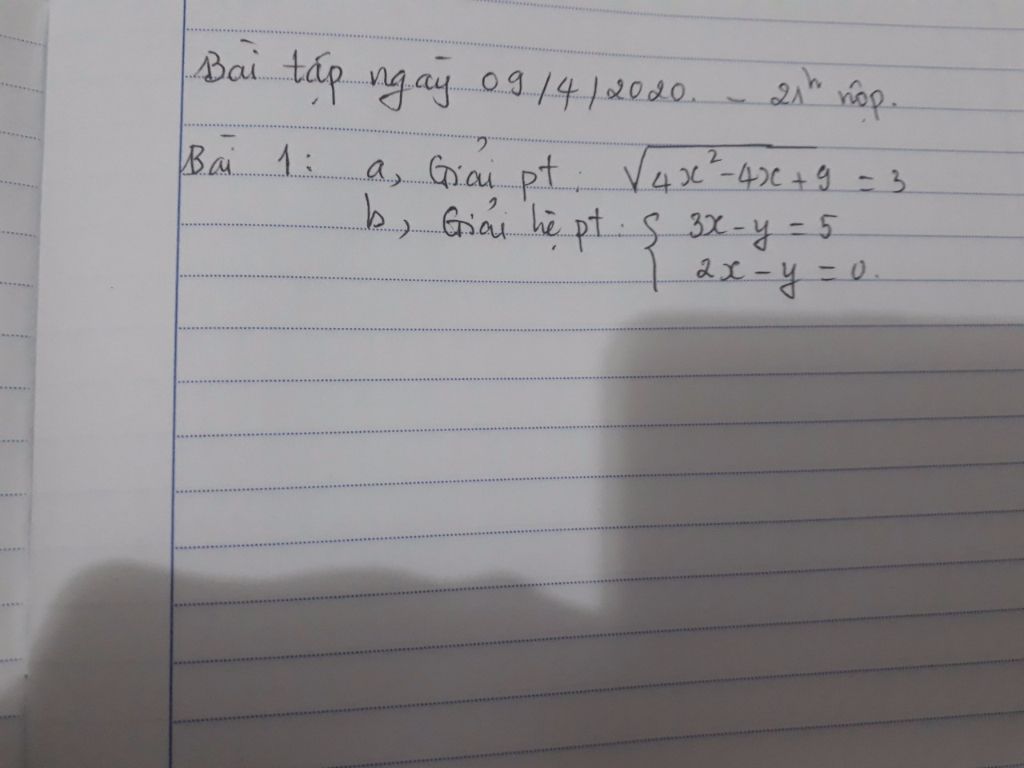 Bài tập ngày 09/4/2020. - 21h nộp.
Bài 1: a, Giải pt: √(4x² - 4x + 9) = 3
b, Giải hệ pt: { 3x - y = 5
2x - y = 0.